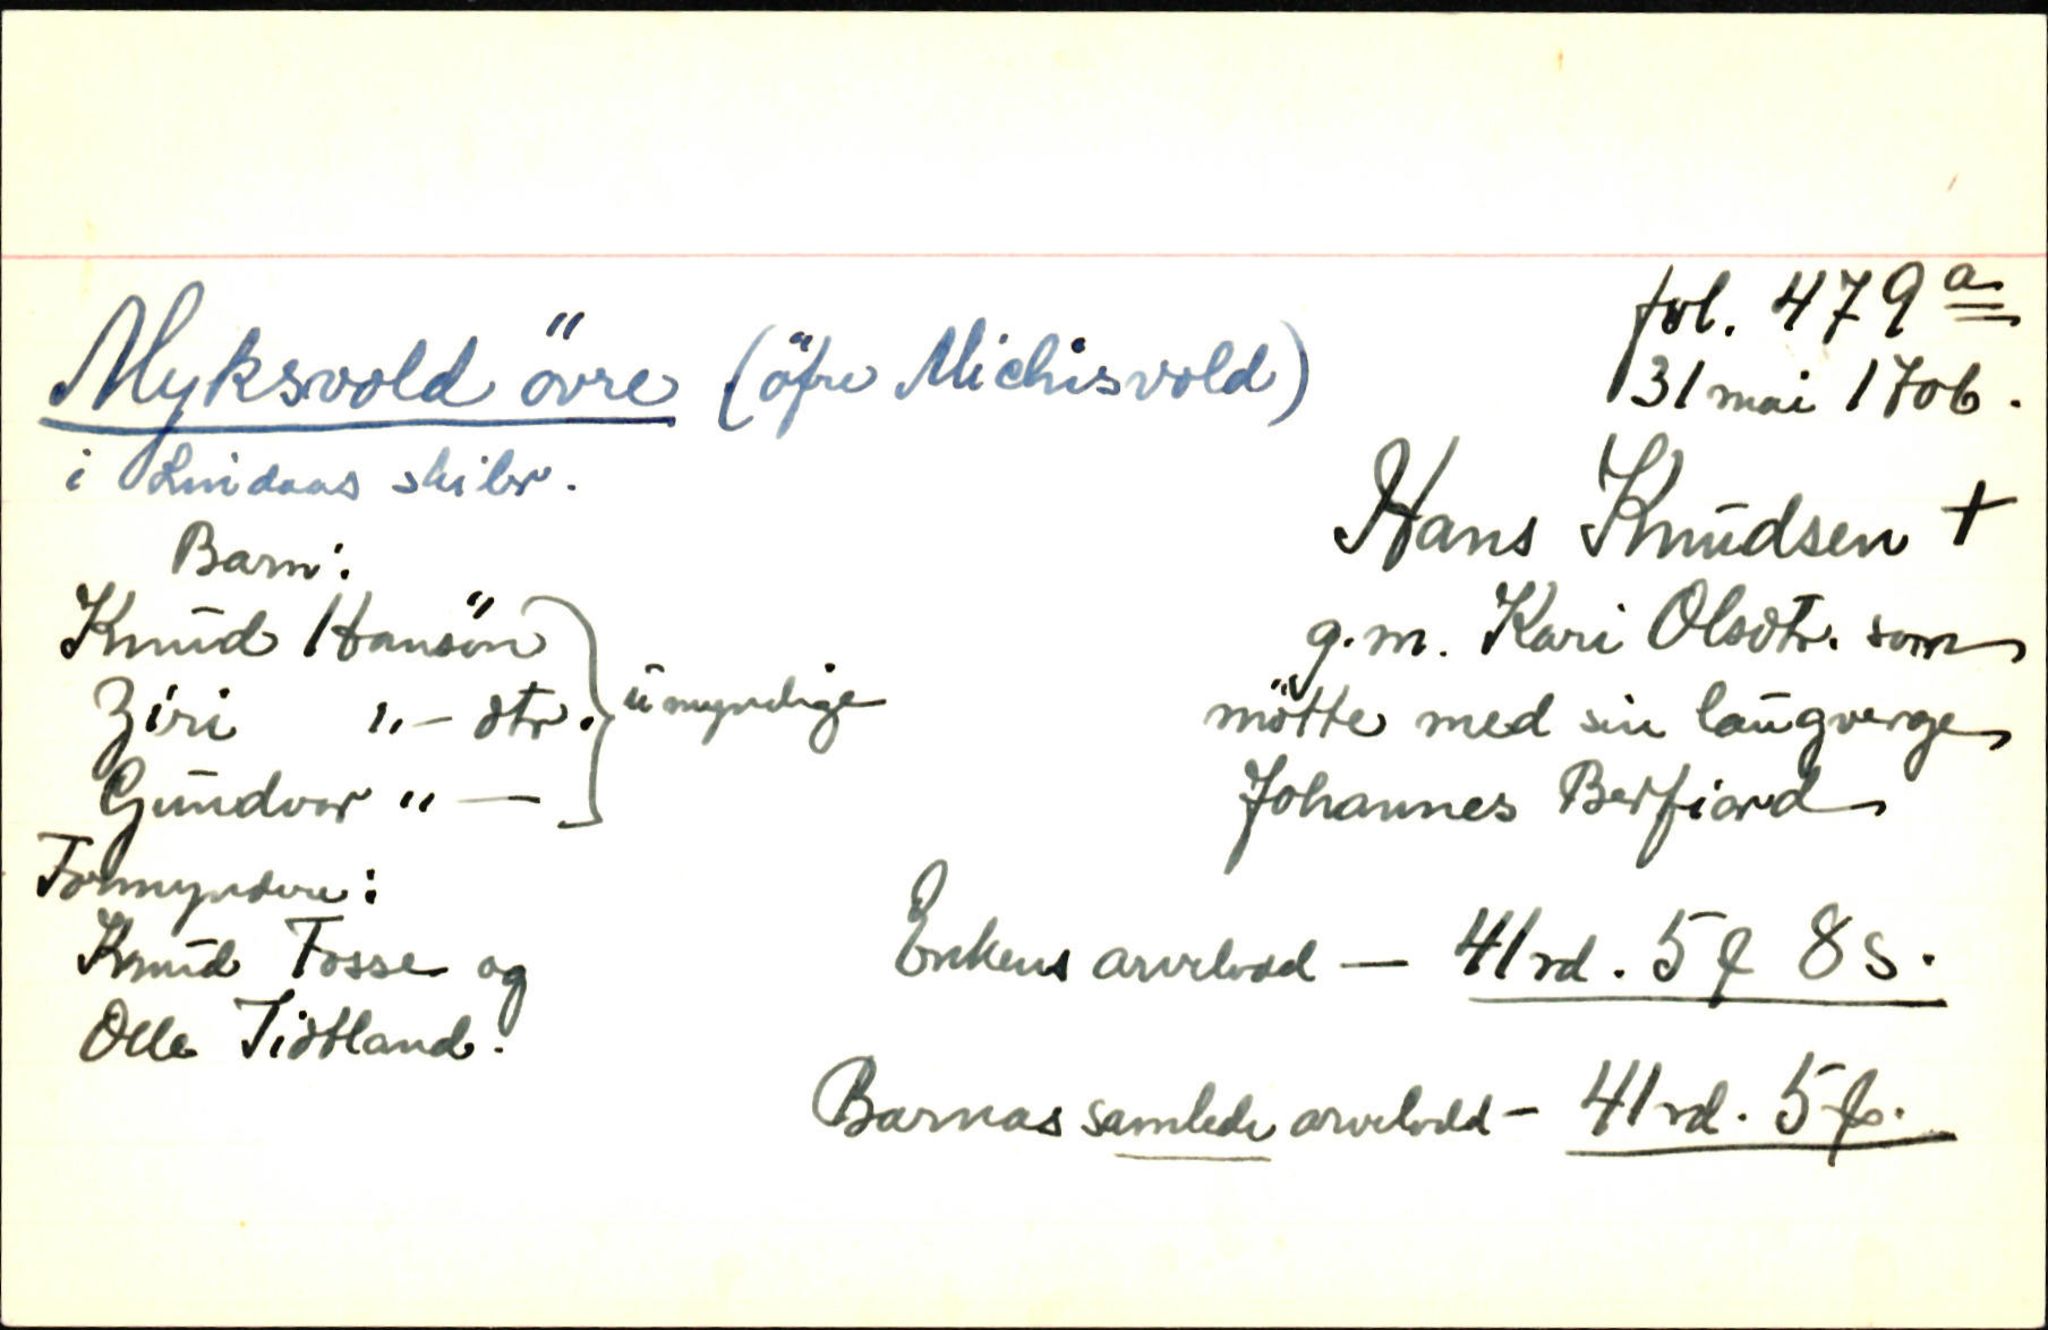 fol. 479 a
31 mai 1706.
Myksvold övre (öfre Michisvold)
i Lindaas skibr.
Hans Knudsen +
g.m. Kari Olsdtr. som
mötte med sin laugverge
Johannes Berfiord
Barn:
Knud Hansön } umyndige
Ziri "- dtr.
Gundvor " —
Formyndere:
Knud Fosse og
Olle Tidtland.
Enkens arvelodd — 41 rd. 5 ₰ 8 s.
Barnas samlede arvelodd - 41 rd. 5 ₰.